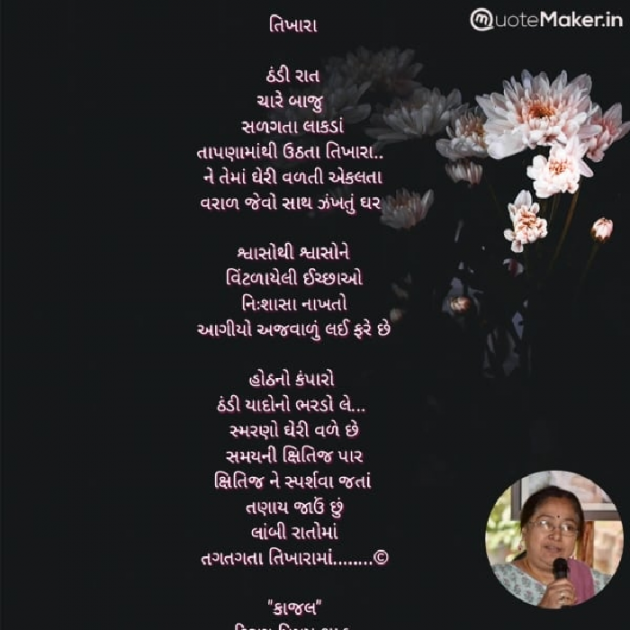 QuoteMaker.in
તિખારા
ઠંડી રાત
ચારે બાજુ
સળગતા લાકડાં
તાપણામાંથી ઉઠતા તિખારા..
ને તેમાં ઘેરી વળતી એકલતા
વરાળ જેવો સાથ ઝંખતું ઘર
શ્વાસોથી શ્વાસોને
વિંટળાયેલી ઈચ્છાઓ
નિઃશાસા નાખતો
આગીયો અજવાળું લઈ ફરે છે
હોઠનો કંપારો
ઠંડી યાદોનો ભરડો લે...
સ્મરણો ઘેરી વળે છે
સમયની ક્ષિતિજ પાર
ક્ષિતિજ ને સ્પર્શવા જતાં
તણાય જાઉં છું
લાંબી રાતોમાં
તગતગતા તિખારામાં........©
"કાજલ"